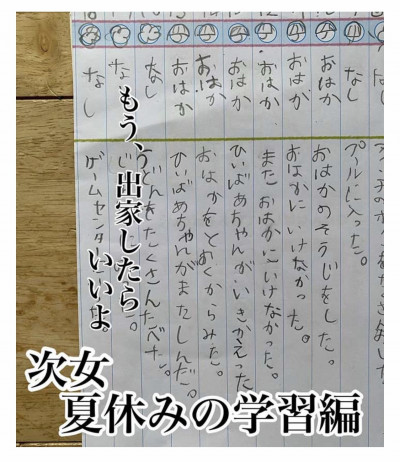 なし
プールに入った。
おはか
おはかのそうじをした。
おはか
おはかにいけなかった。
おはか
またおはかにいけなかった。
おはか
ひいばあちゃんがいきかえった
おはか
おはかをとおくからみた。
おはか
ひいばあちゃんがまたしんだ。
なし
うどんをたくさんたべた。
なし
ゲームセンター
もう、出家したら
いいよ
次女
夏休みの学習編